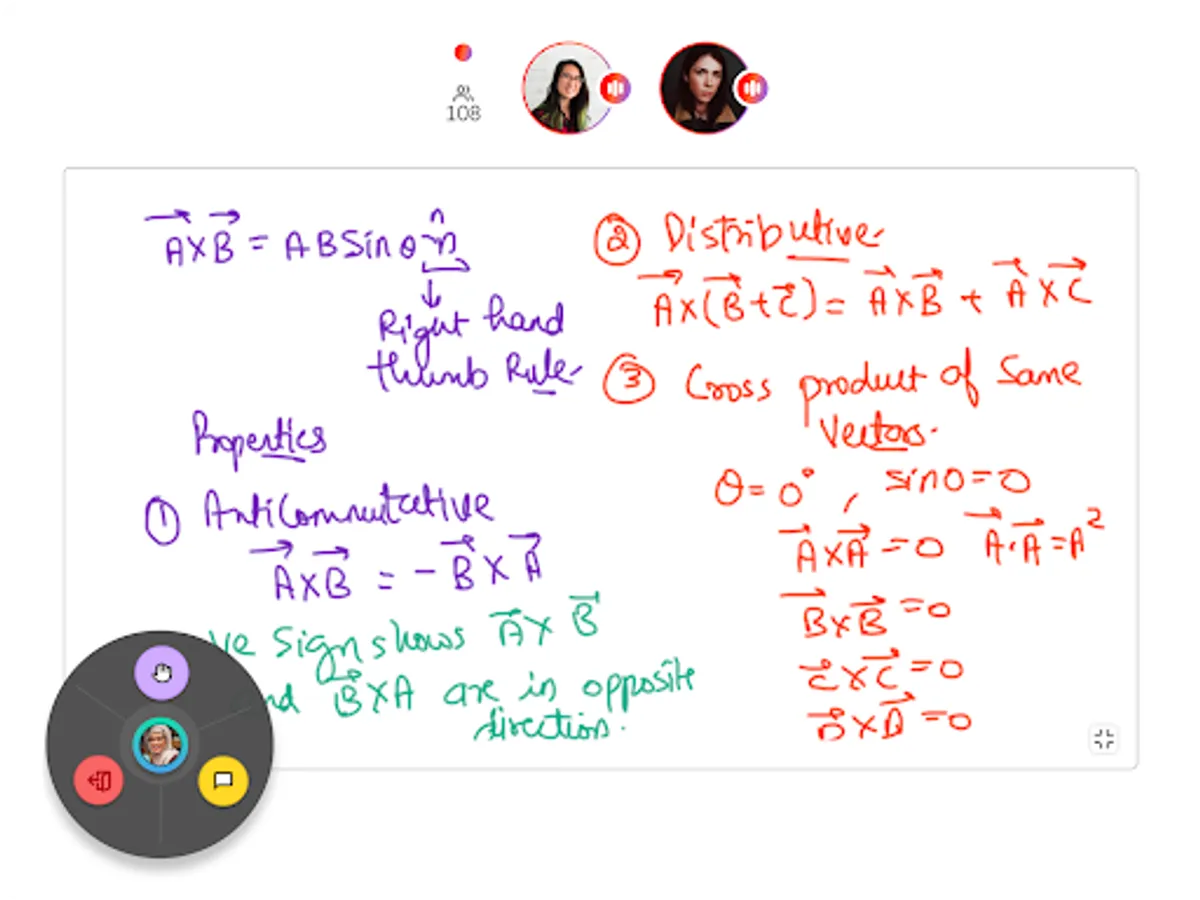 108
A×B = AB Sin θ n̂
↓
Right hand
thumb Rule
Properties
① Anticommutative
A⃗×B⃗ = -B⃗×A⃗
ve Sign shows A⃗×B⃗
nd B⃗×A are in opposite
direction.
② Distributive
A⃗×(B⃗+C⃗) = A⃗×B⃗ + A⃗×C⃗
③ Cross product of Same
Vectors.
θ = 0°, sin 0 = 0
A⃗×A⃗ = 0 A⃗.A⃗ = A²
B⃗×B⃗ = 0
C⃗×C⃗ = 0
D⃗×D⃗ = 0